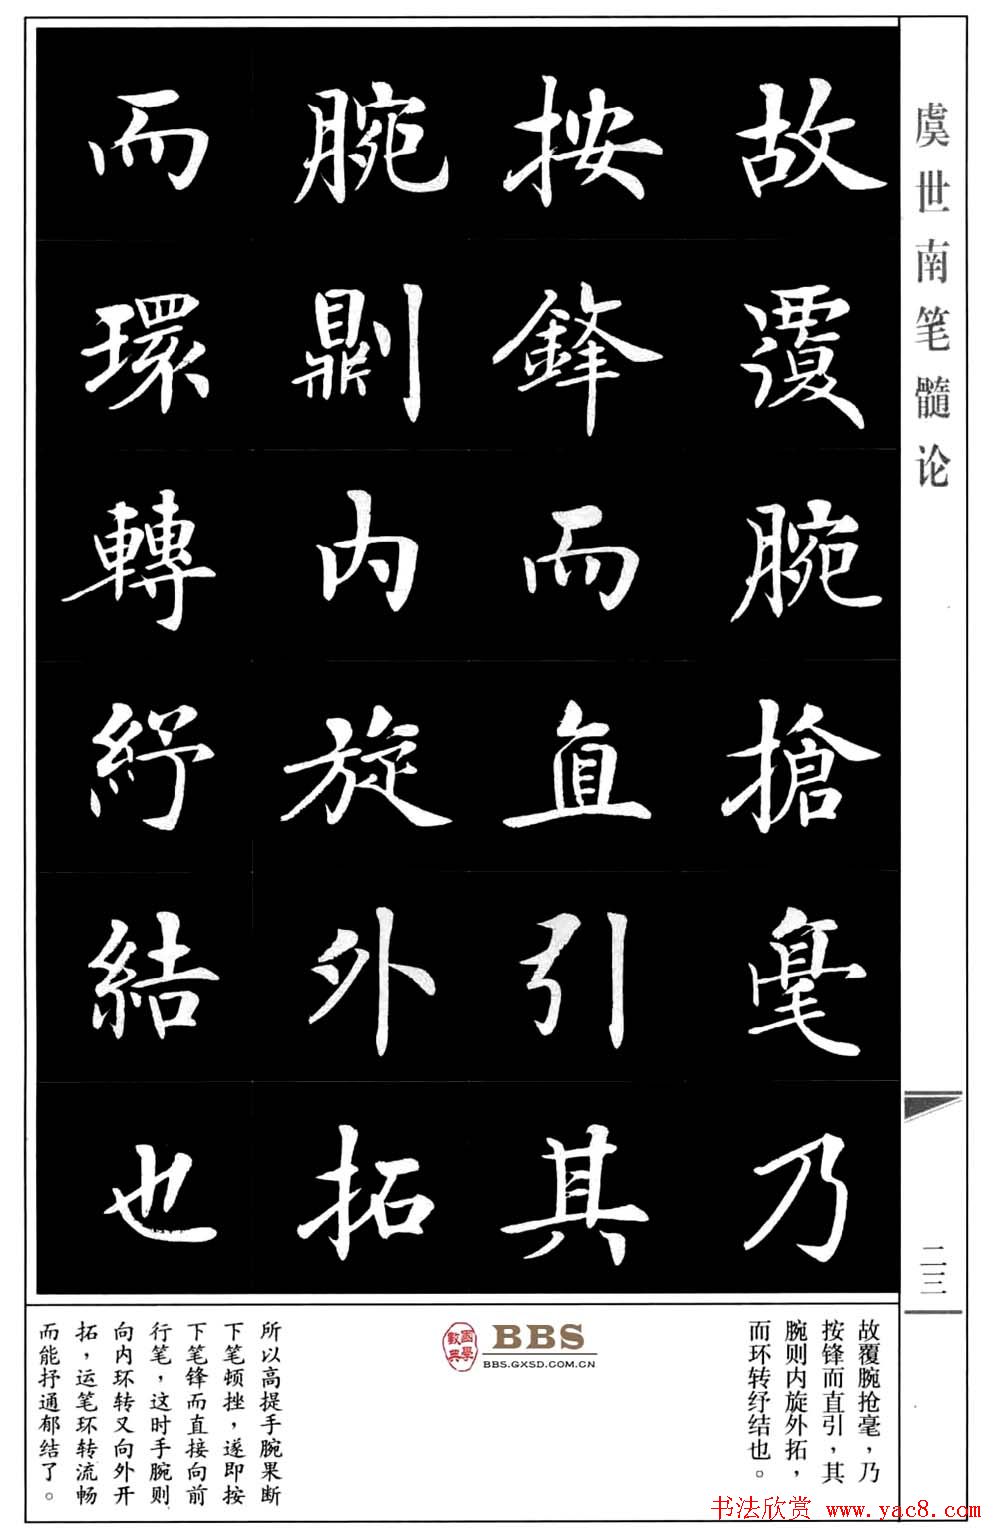 虞世南笔髓论
故覆腕搶毫乃
按鋒而直引其
腕剿内旋外拓
而環轉紓結也
二三
故覆腕抢毫，乃
按锋而直引，其
腕则内旋外拓，
而环转纾结也。
國學
數典
BBS
BBS.GXSD.COM.CN
所以高提手腕果断
下笔顿挫，遂即按
下笔锋而直接向前
行笔，这时手腕则
向内环转又向外开
拓，运笔环转流畅
而能抒通郁结了。
书法欣赏 www.yac8.com